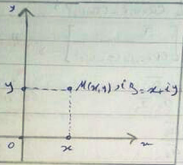 y
y M(x,y), i z=x+iy
0 x x